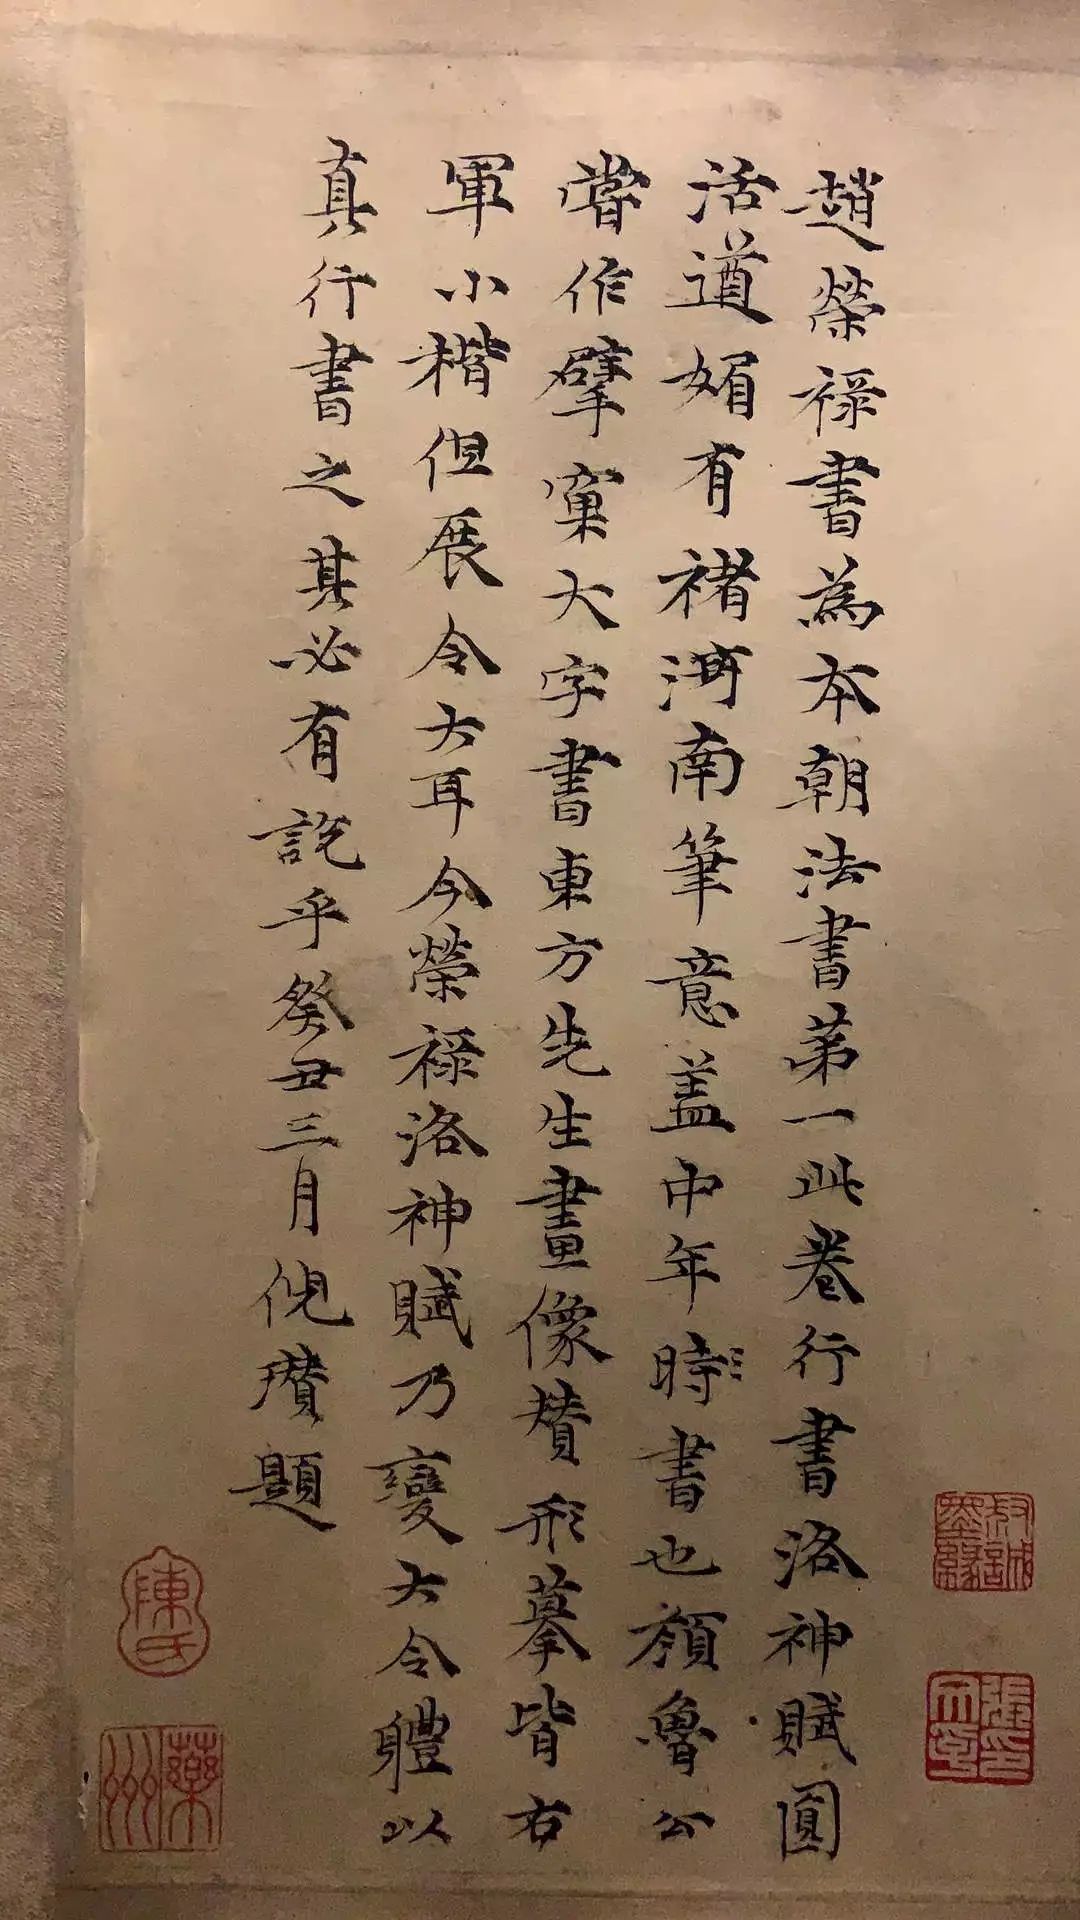 趙榮祿書為本朝法書第一此卷行書洛神賦圓
活遒媚有褚河南筆意蓋中年時書也顏魯公
嘗作擘窠大字書東方先生畫像贊形摹皆右
軍小楷但展令大耳今榮祿洛神賦乃變大令體以
真行書之其必有說乎癸丑三月倪瓚題
陳氏
蘂洲